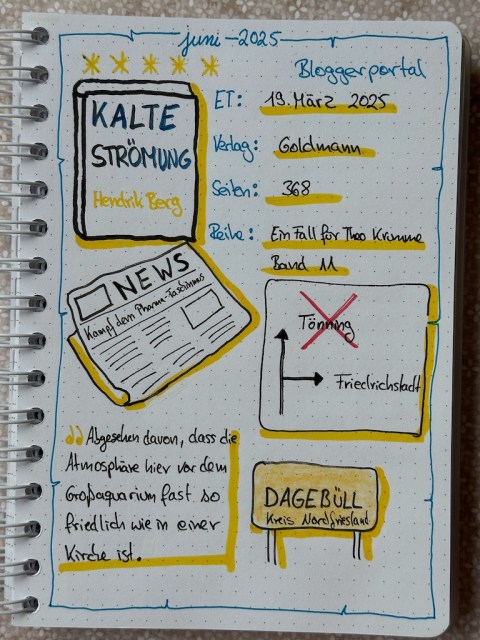 juni - 2025
Bloggerportal
KALTE
STRÖMUNG
Hendrik Berg
ET: 19. März 2025
Verlag: Goldmann
Seiten: 368
Reihe: Ein Fall für Theo Krumme
Band 11
NEWS
Kampf dem Pharma-Faschismus
Tönning
Friedrichstadt
„Abgesehen davon, dass die
Atmosphäre hier vor dem
Großaquarium fast so
friedlich wie in einer
Kirche ist.
DAGEBÜLL
Kreis Nordfriesland